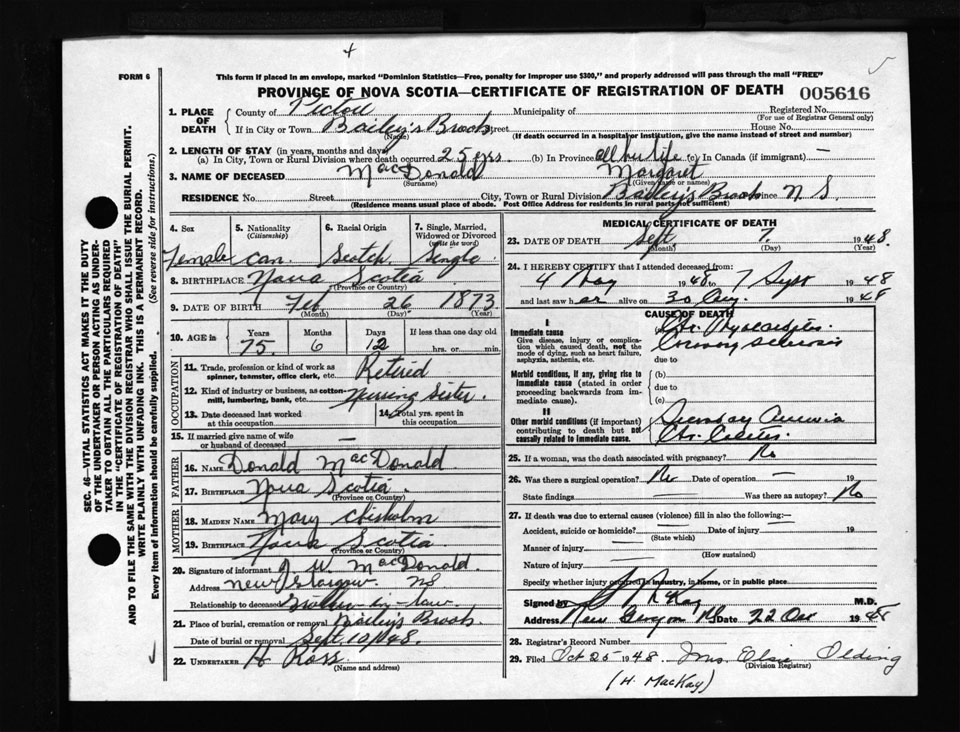 FORM 6
This form if placed in an envelope, marked "Dominion Statistics—Free, penalty for improper use $300," and properly addressed will pass through the mail "FREE"
PROVINCE OF NOVA SCOTIA—CERTIFICATE OF REGISTRATION OF DEATH 005616
1. PLACE OF DEATH County of Pictou Municipality of Registered No. (For use of Registrar General only)
If in City or Town Bailey's Brook Street House No.
(Name) (If death occurred in a hospital or institution, give the name instead of street and number)
2. LENGTH OF STAY (in years, months and days)
(a) In City, Town or Rural Division where death occurred 25 yrs. (b) In Province all her life (c) In Canada (if immigrant) —
3. NAME OF DECEASED MacDonald Margaret
(Surname) (Given name or names)
RESIDENCE No. Street City, Town or Rural Division Bailey's Brook Province N S
(Residence means usual place of abode. Post Office Address for residents in rural parts not sufficient)
SEC. 46—VITAL STATISTICS ACT MAKES IT THE DUTY
OF THE UNDERTAKER OR PERSON ACTING AS UNDER-
TAKER TO OBTAIN ALL THE PARTICULARS REQUIRED
IN THE "CERTIFICATE OF REGISTRATION OF DEATH"
AND TO FILE THE SAME WITH THE DIVISION REGISTRAR WHO SHALL ISSUE THE BURIAL PERMIT.
WRITE PLAINLY WITH UNFADING INK. THIS IS A PERMANENT RECORD.
Every item of information should be carefully supplied. (See reverse side for instructions.)
4. Sex 5. Nationality (Citizenship) 6. Racial Origin 7. Single, Married, Widowed or Divorced (write the word)
Female Can. Scotch Single
8. BIRTHPLACE Nova Scotia
(Province or Country)
9. DATE OF BIRTH Feb 26 1873
(Month) (Day) (Year)
10. AGE Years Months Days If less than one day old
75 6 12 hrs. or min.
OCCUPATION
11. Trade, profession or kind of work as spinner, teamster, office clerk, etc. Retired
12. Kind of industry or business, as cotton-mill, lumbering, bank, etc. Nursing Sister
13. Date deceased last worked at this occupation 14. Total yrs. spent in this occupation
15. If married give name of wife or husband of deceased —
FATHER
16. NAME Donald MacDonald
17. BIRTHPLACE Nova Scotia
(Province or Country)
MOTHER
18. MAIDEN NAME Mary Chisholm
19. BIRTHPLACE Nova Scotia
(Province or Country)
20. Signature of informant J. W. MacDonald
Address New Glasgow NS
Relationship to deceased Brother-in-law
21. Place of burial, cremation or removal Bailey's Brook
Date of burial or removal Sept. 10/48
22. UNDERTAKER H Ross
(Name and address)
MEDICAL CERTIFICATE OF DEATH
23. DATE OF DEATH Sept 7 1948
(Month) (Day)
24. I HEREBY CERTIFY that I attended deceased from:
4 May 1948 to 7 Sept 1948
and last saw her alive on 30 Aug. 1948
CAUSE OF DEATH
I
Immediate cause
Give disease, injury or complication which caused death, not the mode of dying, such as heart failure, asphyxia, asthenia, etc.
Chr. Myocarditis
Coronary Sclerosis
due to
Morbid conditions, if any, giving rise to immediate cause (stated in order proceeding backwards from immediate cause).
(b)
due to
(c)
II
Other morbid conditions (if important) contributing to death but not causally related to immediate cause.
Secondary Anemia
Chr. Colitis
25. If a woman, was the death associated with pregnancy? No
26. Was there a surgical operation? No Date of operation —
State findings — Was there an autopsy? No
27. If death was due to external causes (violence) fill in also the following:—
Accident, suicide or homicide? Date of injury 19
(State which)
Manner of injury
(How sustained)
Nature of injury
Specify whether injury occurred in industry, in home, or in public place
Signed by McKay M.D.
Address New Glasgow NS Date 22 Oct 1948
28. Registrar's Record Number
29. Filed Oct 25 1948 Mrs. Elsie Olding
(Division Registrar)
(H. MacKay)